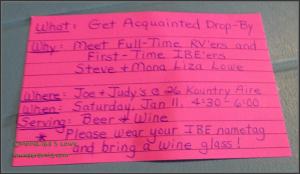 What: Get Acquainted Drop-By
Why: Meet Full-Time RV'ers and
First-Time IBE'ers
Steve + Mona Liza Lowe
Where: Joe + Judy's @ 26 Kountry Aire
When: Saturday, Jan 11, 4:30-6:00
Serving: Beer + Wine
* Please wear your IBE nametag
and bring a wine glass!